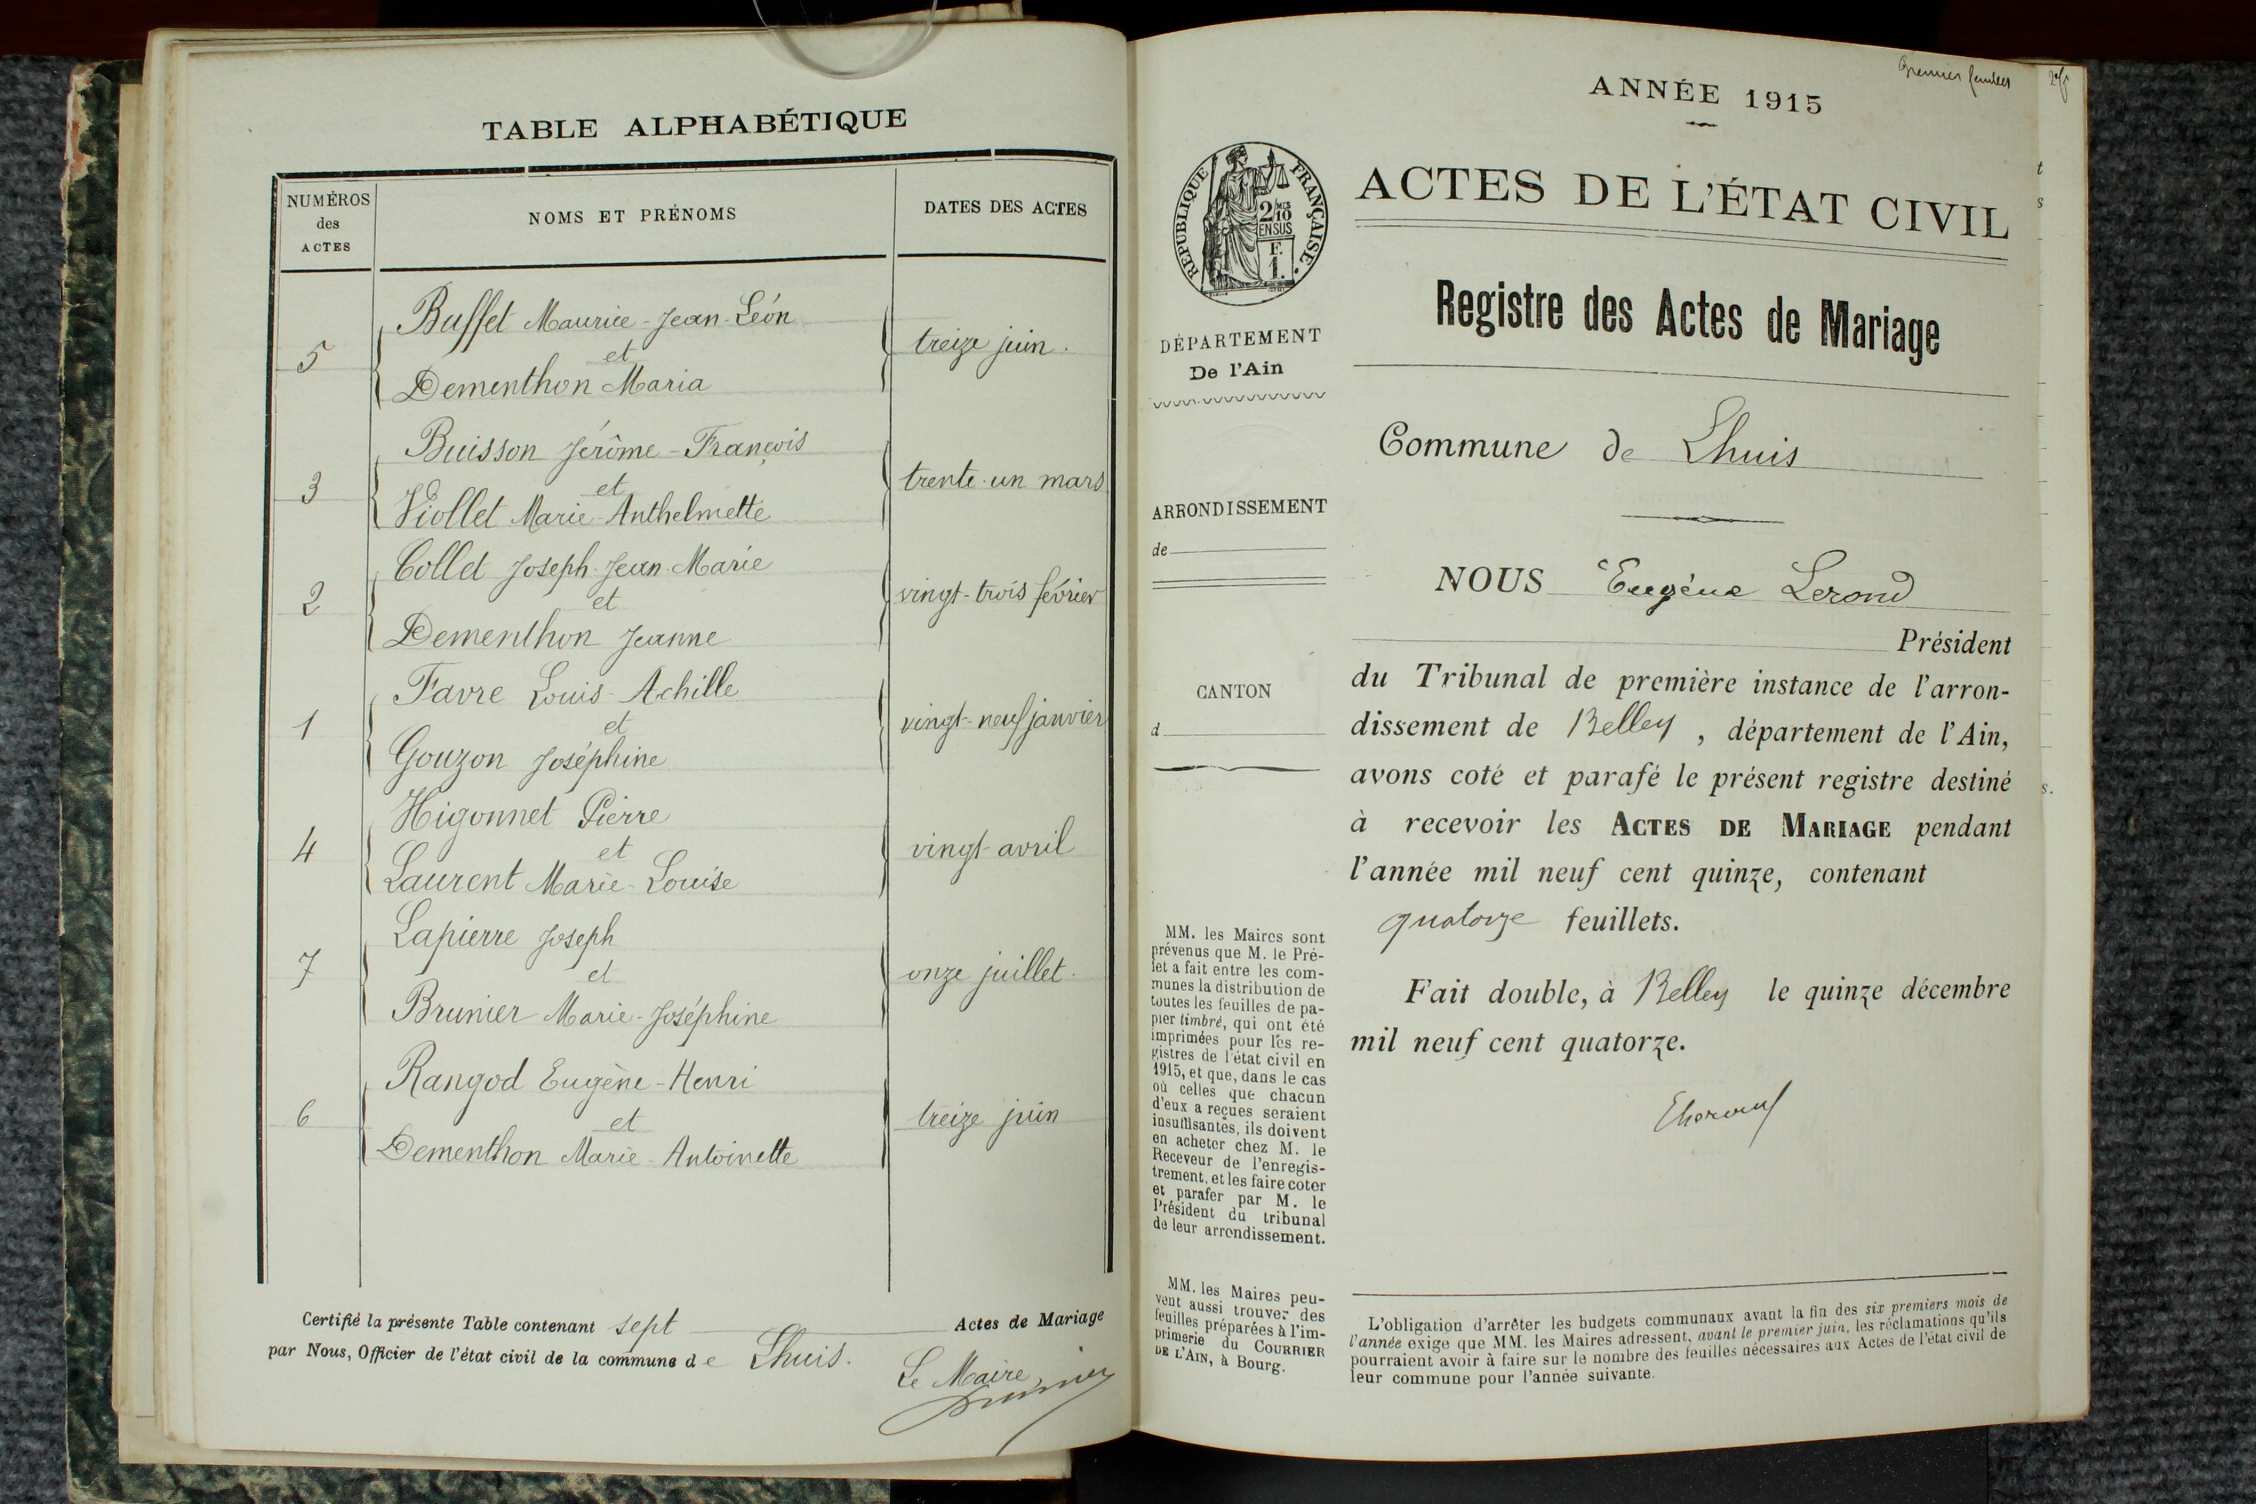 TABLE ALPHABÉTIQUE
NUMÉROS
des
ACTES
NOMS ET PRÉNOMS
DATES DES ACTES
5
Buffet Maurice-Jean-Léon
et
Dementhon Maria
treize juin.
3
Buisson Jérôme-François
et
Viollet Marie-Anthelmette
trente-un mars
2
Collet Joseph-Jean-Marie
et
Dementhon Jeanne
vingt-trois février
1
Favre Louis-Achille
et
Gouzon Joséphine
vingt-neuf janvier
4
Higonnet Pierre
et
Laurent Marie-Louise
vingt avril
7
Lapierre Joseph
et
Brunier Marie-Joséphine
onze juillet.
6
Rangod Eugène-Henri
et
Dementhon Marie-Antoinette
treize juin
Certifié la présente Table contenant sept Actes de Mariage
par Nous, Officier de l'état civil de la commune de Lhuis.
Le Maire,
Premier feuillet
ANNÉE 1915
ACTES DE L'ÉTAT CIVIL
RÉPUBLIQUE FRANÇAISE
2/10
EN SUS
F.
1.
DÉPARTEMENT
De l'Ain
ARRONDISSEMENT
de
CANTON
d
MM. les Maires sont
prévenus que M. le Pré-
fet a fait entre les com-
munes la distribution de
toutes les feuilles de pa-
pier timbré, qui ont été
imprimées pour les re-
gistres de l'état civil en
1915, et que, dans le cas
où celles que chacun
d'eux a reçues seraient
insuffisantes, ils doivent
en acheter chez M. le
Receveur de l'enregis-
trement, et les faire coter
et parafer par M. le
Président du tribunal
de leur arrondissement.
MM. les Maires peu-
vent aussi trouver des
feuilles préparées à l'im-
primerie du COURRIER
DE L'AIN, à Bourg.
Registre des Actes de Mariage
Commune de Lhuis
NOUS Eugène Lerond
Président
du Tribunal de première instance de l'arron-
dissement de Belley, département de l'Ain,
avons coté et parafé le présent registre destiné
à recevoir les ACTES DE MARIAGE pendant
l'année mil neuf cent quinze, contenant
quatorze feuillets.
Fait double, à Belley le quinze décembre
mil neuf cent quatorze.
L'obligation d'arrêter les budgets communaux avant la fin des six premiers mois de
l'année exige que MM. les Maires adressent, avant le premier juin, les réclamations qu'ils
pourraient avoir à faire sur le nombre des feuilles nécessaires aux Actes de l'état civil de
leur commune pour l'année suivante.